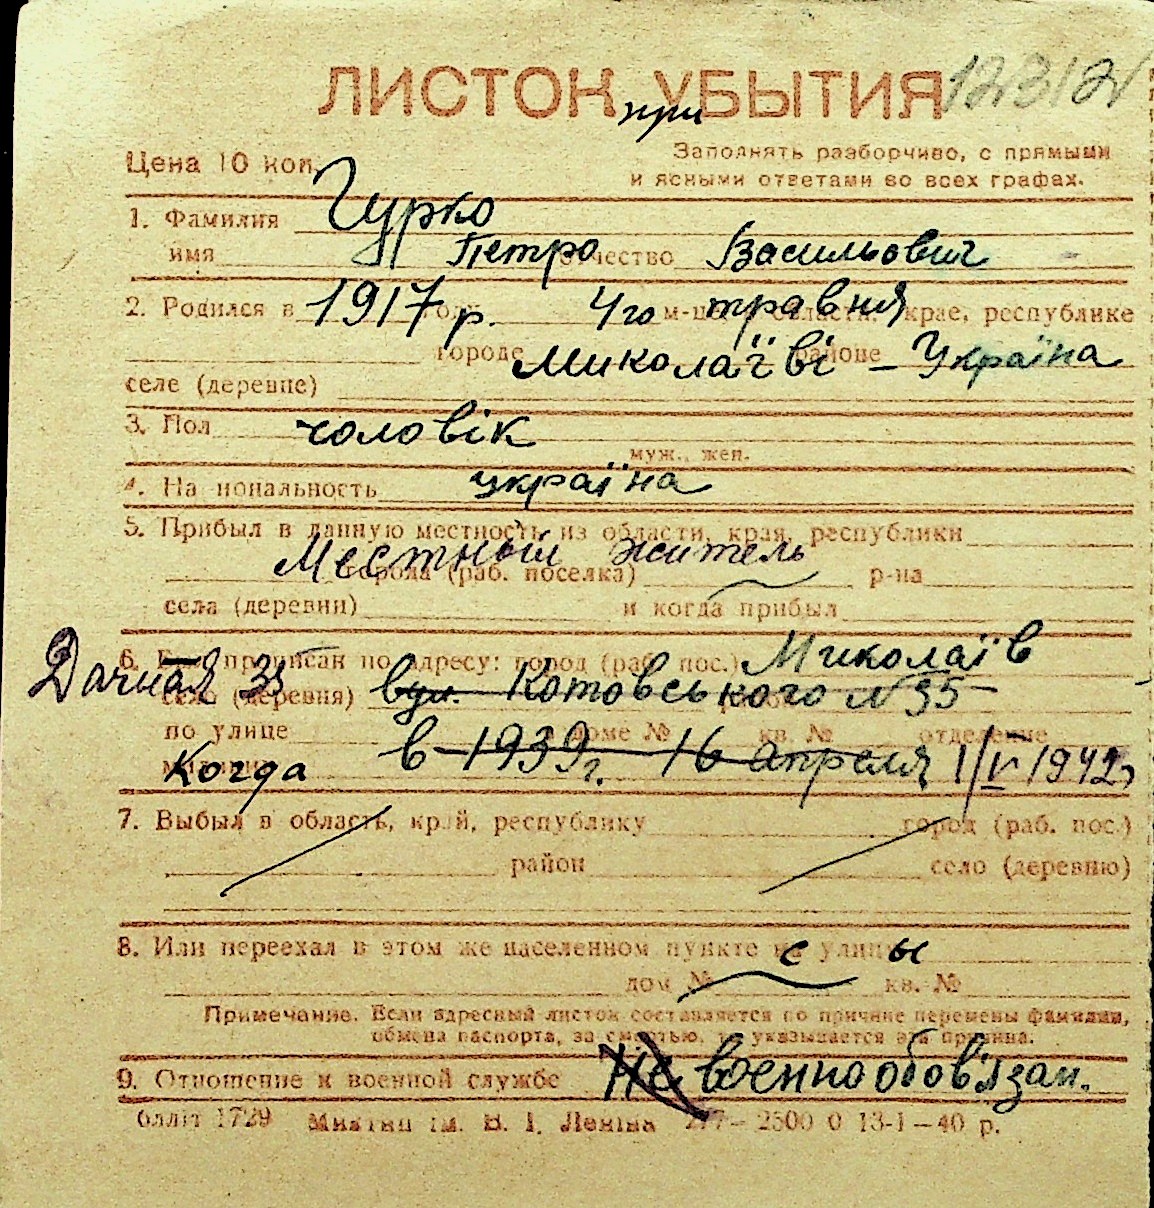 ЛИСТОК УБЫТИЯ 12312
при
Цена 10 коп. Заполнять разборчиво, с прямыми
и ясными ответами во всех графах.
1. Фамилия Гурко
имя Петро отчество Васильович
2. Родился в 1917 р. году 4го м-це травня области, крае, республике
городе Миколаïвi районе – Украïна
селе (деревне)
3. Пол чоловiк
муж., жен.
4. Национальность украïна
5. Прибыл в данную местность из области, края, республики
Местный житель
города (раб. поселка) р-на
села (деревни) и когда прибыл
6. Был прописан по адресу: город (раб. пос.) Миколаïв
Дачная 35 село (деревня) вул. Котовського N 35
по улице доме № кв. № отделение
Когда в 1939 г. 16 апреля 1/V 1942 г
7. Выбыл в область, край, республику город (раб. пос.)
район село (деревню)
8. Или переехал в этом же населенном пункте с улицы
дом № кв. №
Примечание. Если адресный листок составляется по причине перемены фамилии,
обмена паспорта, за смертью, то указывается эта причина.
9. Отношение к военной службе Не военнообов'язан.
блліт 1729 ім. В. І. Леніна 277–2500 0 13-I–40 р.